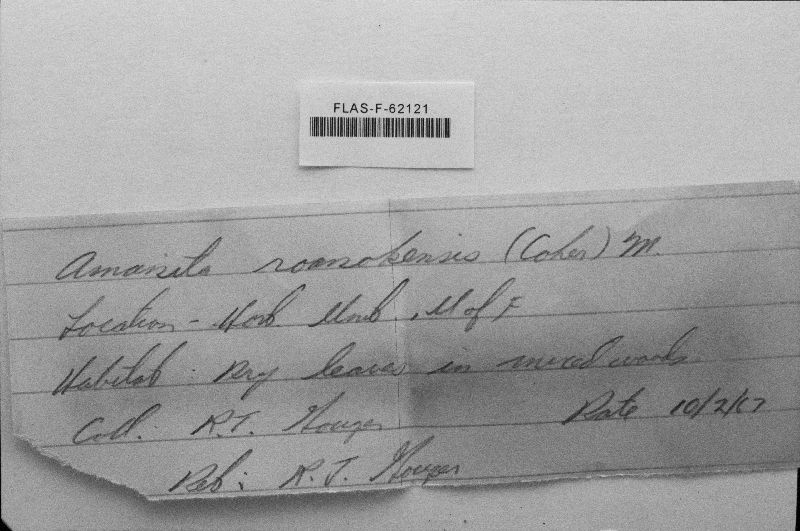 FLAS-F-62121
Amanita roanokensis (Coker) M.
Location - Hort. Unit, U of F
Habitat: Dry leaves in mixed woods
Coll. R.T. Gouger
Date 10/2/67
Det: R.J. Gouger